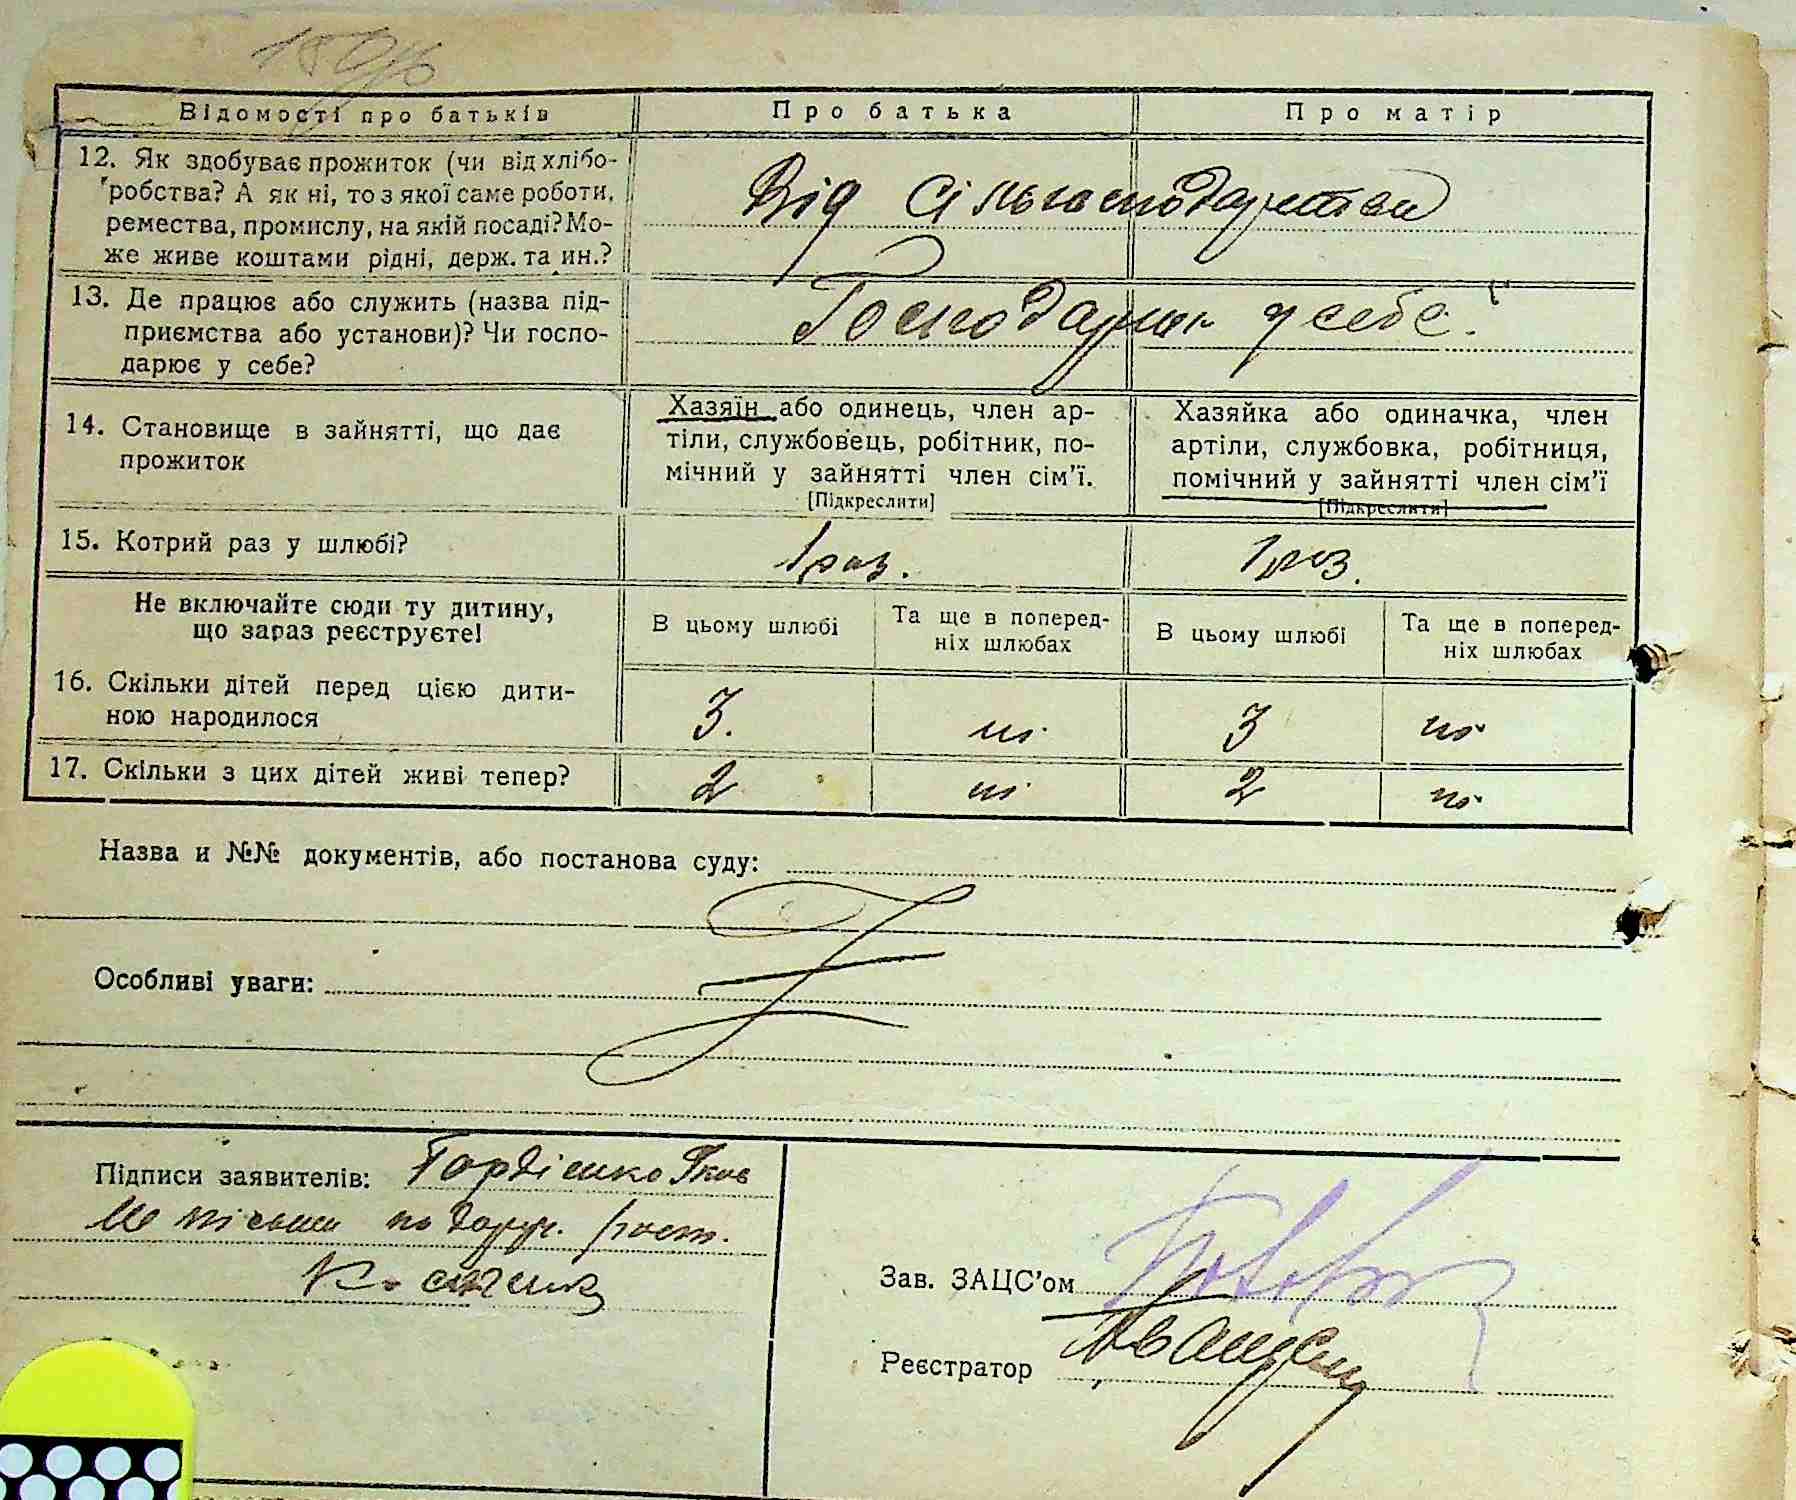 Відомості про батьків
Про батька
Про матір
12. Як здобуває прожиток (чи від хлібо-
робства? А як ні, то з якої саме роботи,
ремества, промислу, на якій посаді? Мо-
же живе коштами рідні, держ. та ин.?
Від сільгосподарства
13. Де працює або служить (назва під-
приємства або установи)? Чи госпо-
дарює у себе?
Господарює у себе.
14. Становище в зайнятті, що дає
прожиток
Хазяїн або одинець, член ар-
тіли, службовець, робітник, по-
мічний у зайнятті член сім’ї.
[Підкреслити]
Хазяйка або одиначка, член
артіли, службовка, робітниця,
помічний у зайнятті член сім’ї
[Підкреслити]
15. Котрий раз у шлюбі?
1 раз.
1 раз.
Не включайте сюди ту дитину,
що зараз реєструєте!
В цьому шлюбі
Та ще в поперед-
ніх шлюбах
В цьому шлюбі
Та ще в поперед-
ніх шлюбах
16. Скільки дітей перед цією дити-
ною народилося
3.
ні
3
ні
17. Скільки з цих дітей живі тепер?
2
ні
2
ні
Назва и №№ документів, або постанова суду:
Особливі уваги:
Підписи заявителів: Гордієнко Яків
по доруч.
Зав. ЗАЦС’ом
Реєстратор